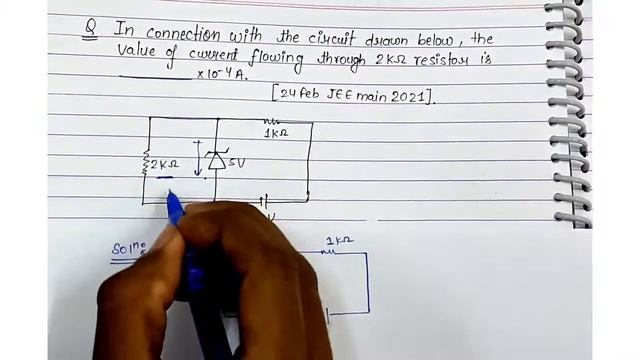 Q In connection with the circuit drawn below, the
value of current flowing through 2kΩ resistor is
______ x10⁻⁴A.
[24 feb JEE main 2021].
1kΩ
2KΩ
5V
V
Solnº
1KΩ